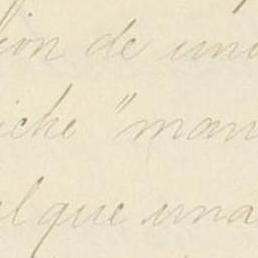 ion de una
iche "man
el que una